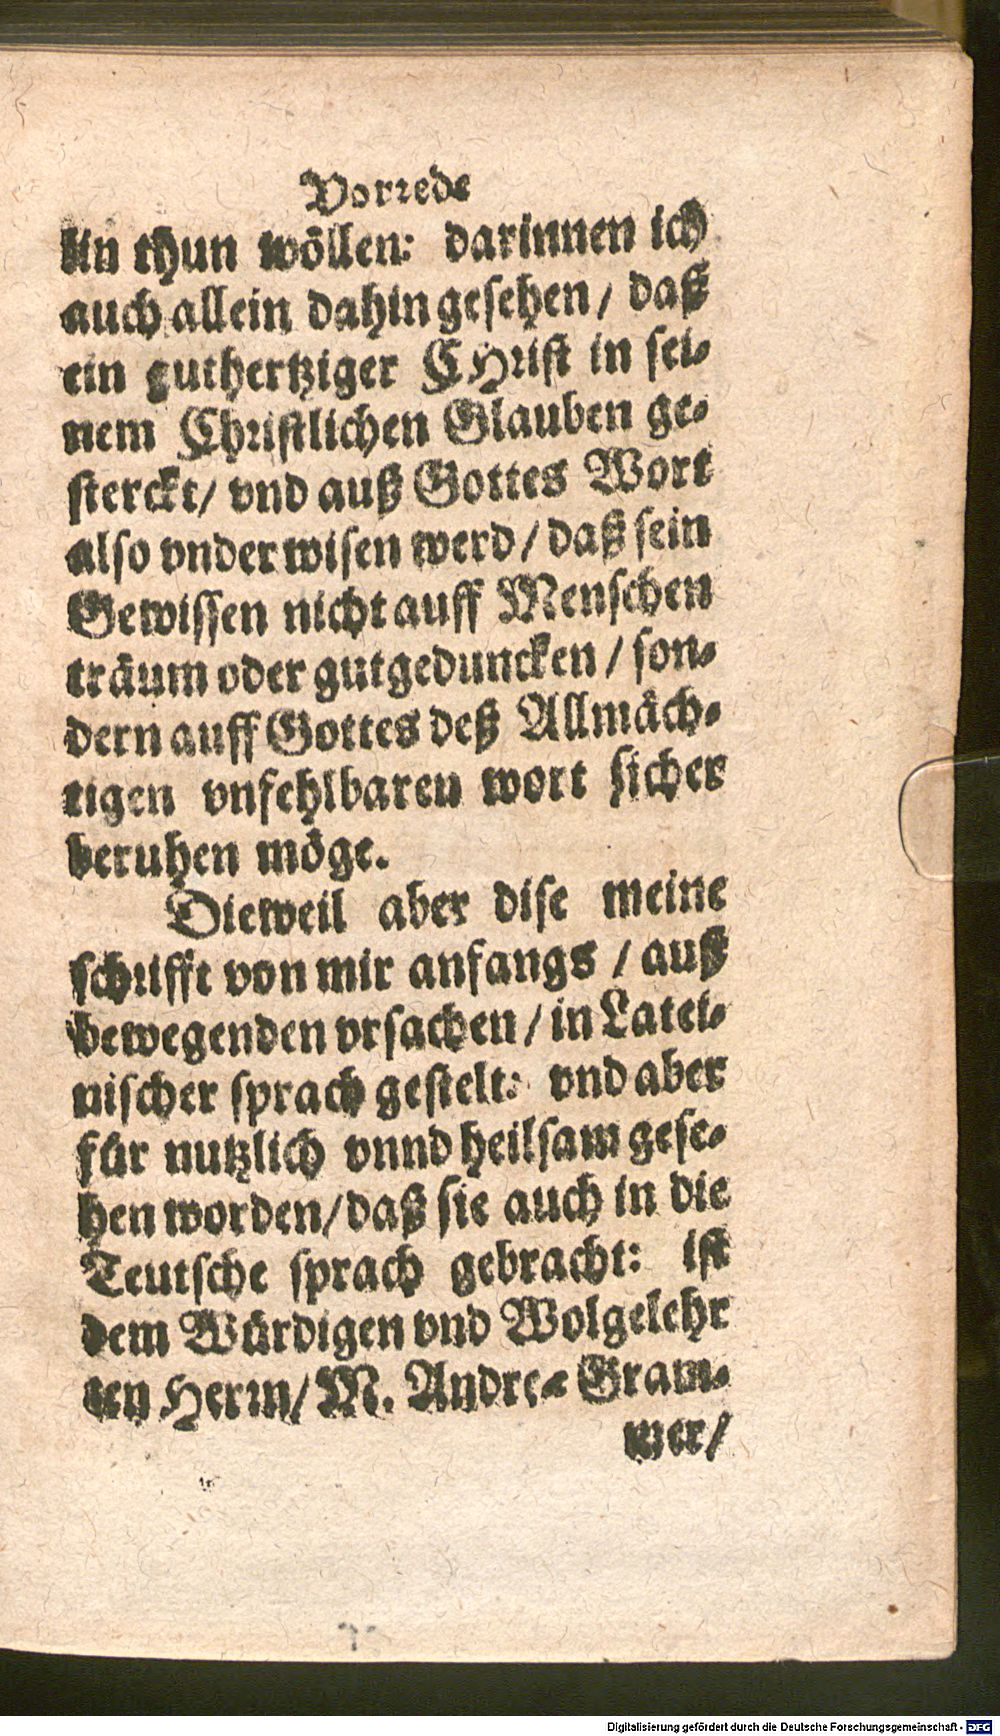 Vorrede
lin thun wöllen: darinnen ich
auch allein dahin gesehen / daß
ein guthertziger CHrist in sei-
nem Christlichen Glauben ge-
sterckt / vnd auß Gottes Wort
also vnderwisen werd / daß sein
Gewissen nicht auff Menschen
träum oder gutgeduncken / son-
dern auff Gottes deß Allmäch-
tigen vnfehlbaren wort sicher
beruhen möge.
Dieweil aber dise meine
schrifft von mir anfangs / auß
bewegenden vrsachen / in Latei-
nischer sprach gestelt: vnd aber
für nutzlich vnnd heilsam gese-
hen worden / daß sie auch in die
Teutsche sprach gebracht: ist
dem Würdigen vnd Wolgelehr
ten Herrn / M. Andreæ Gram-
mer /
Digitalisierung gefördert durch die Deutsche Forschungsgemeinschaft - DFG